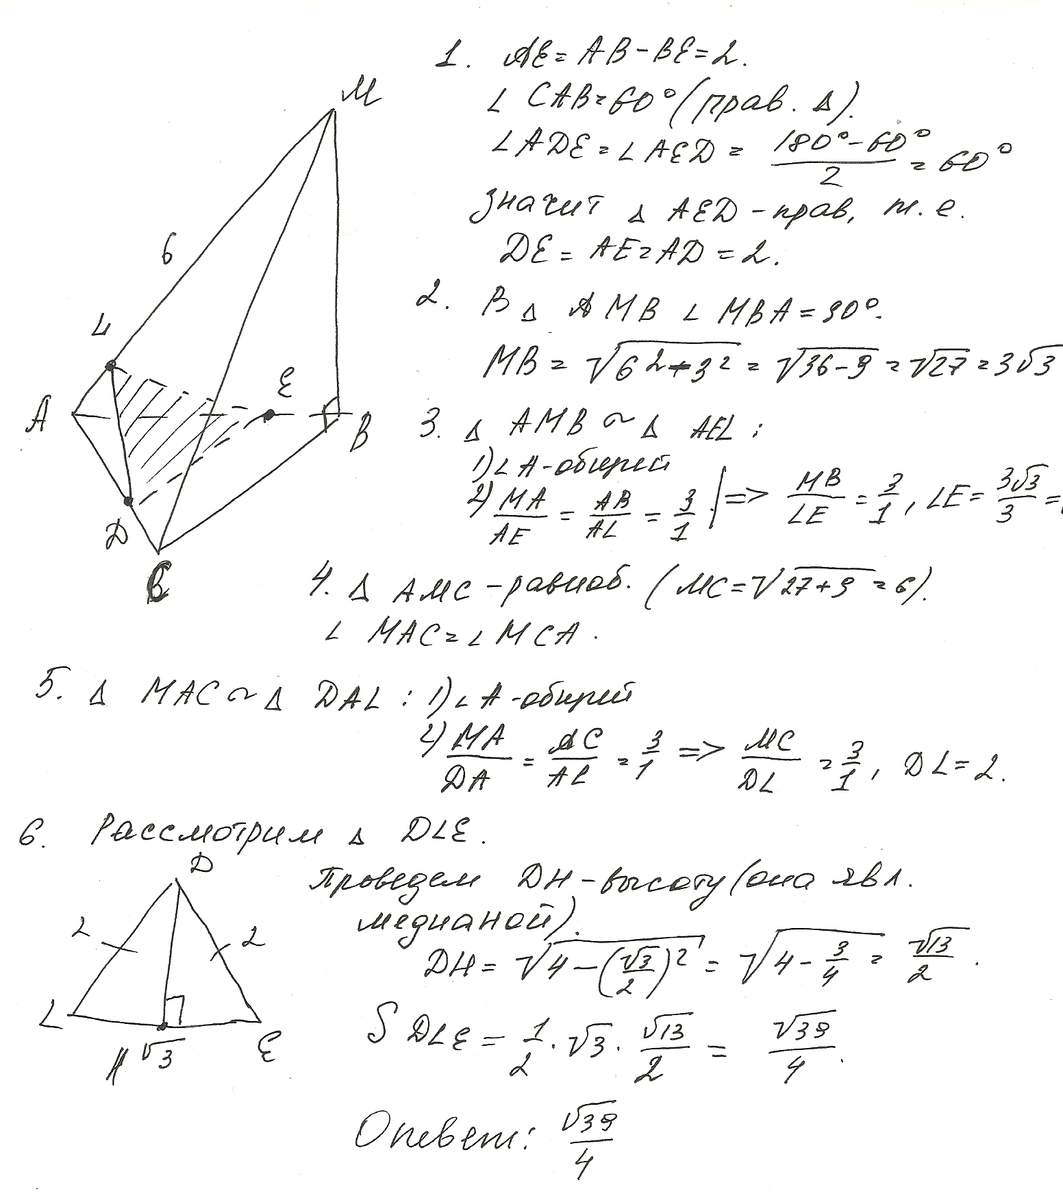 1. AE = AB - BE = 2.
∠ CAB = 60° (прав. Δ).
∠ ADE = ∠ AED = (180° - 60°)/2 = 60°
Значит Δ AED - прав, т.е.
DE = AE = AD = 2.
2. В Δ AMB ∠ MBA = 90°.
MB = √(6² - 3²) = √(36-9) = √27 = 3√3
3. Δ AMB ~ Δ AEL :
1) ∠ A - общий
2) MA/AE = AB/AL = 3/1 => MB/LE = 3/1, LE = 3√3/3 =
4. Δ AMC - равноб. (MC = √(27+9) = 6).
∠ MAC = ∠ MCA.
5. Δ MAC ~ Δ DAL : 1) ∠ A - общий
2) MA/DA = AC/AL = 3/1 => MC/DL = 3/1, DL = 2.
6. Рассмотрим Δ DLE.
Проведем DH - высоту (она явл.
медианой).
DH = √(4 - (√3/2)²) = √(4 - 3/4) = √13/2.
S DLE = 1/2 · √3 · √13/2 = √39/4.
Ответ: √39/4
M
6
L
A
E
B
D
C
D
2
2
L
H
√3
E